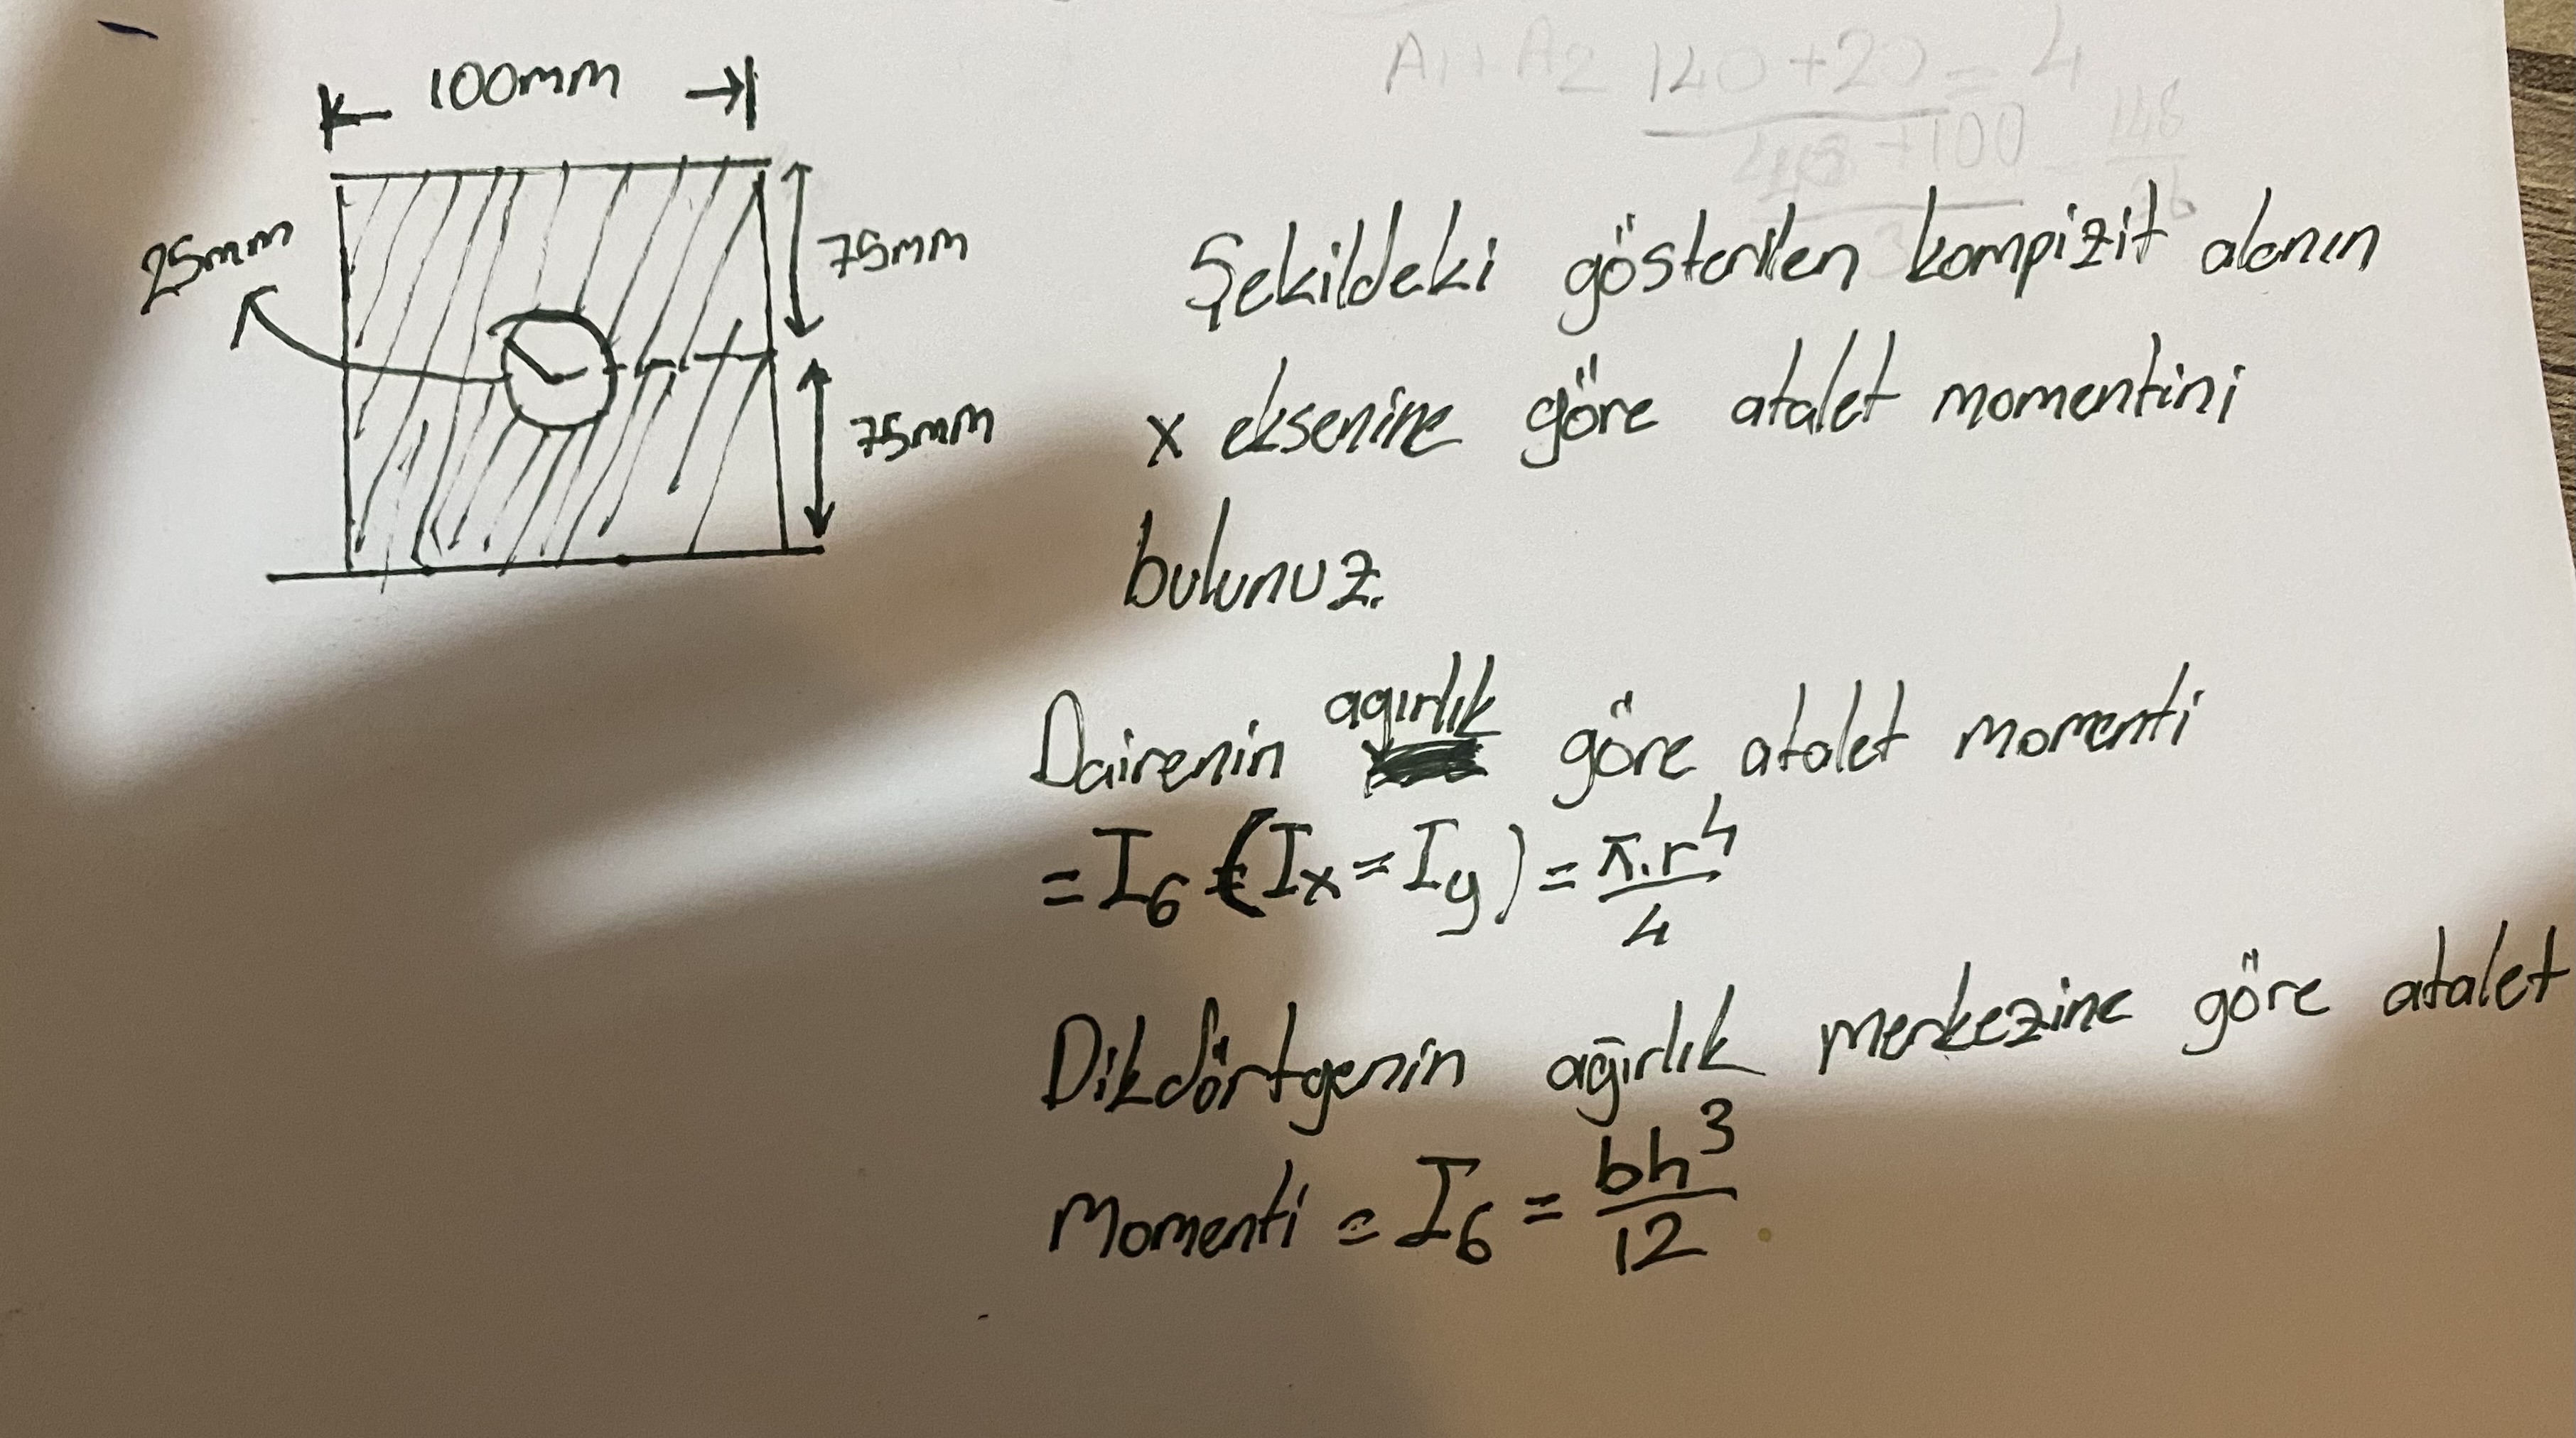 100mm
25mm
75mm
75mm
A1+A2 120+20 = 4
+100
Şekildeki gösterilen kompizit alanın
x eksenine göre atalet momentini
bulunuz.
Dairenin ağırlık göre atalet momenti
= I6 (Ix = Iy) = π.r⁴/4
Dikdörtgenin ağırlık merkezine göre atalet
Momenti = I6 = bh³/12